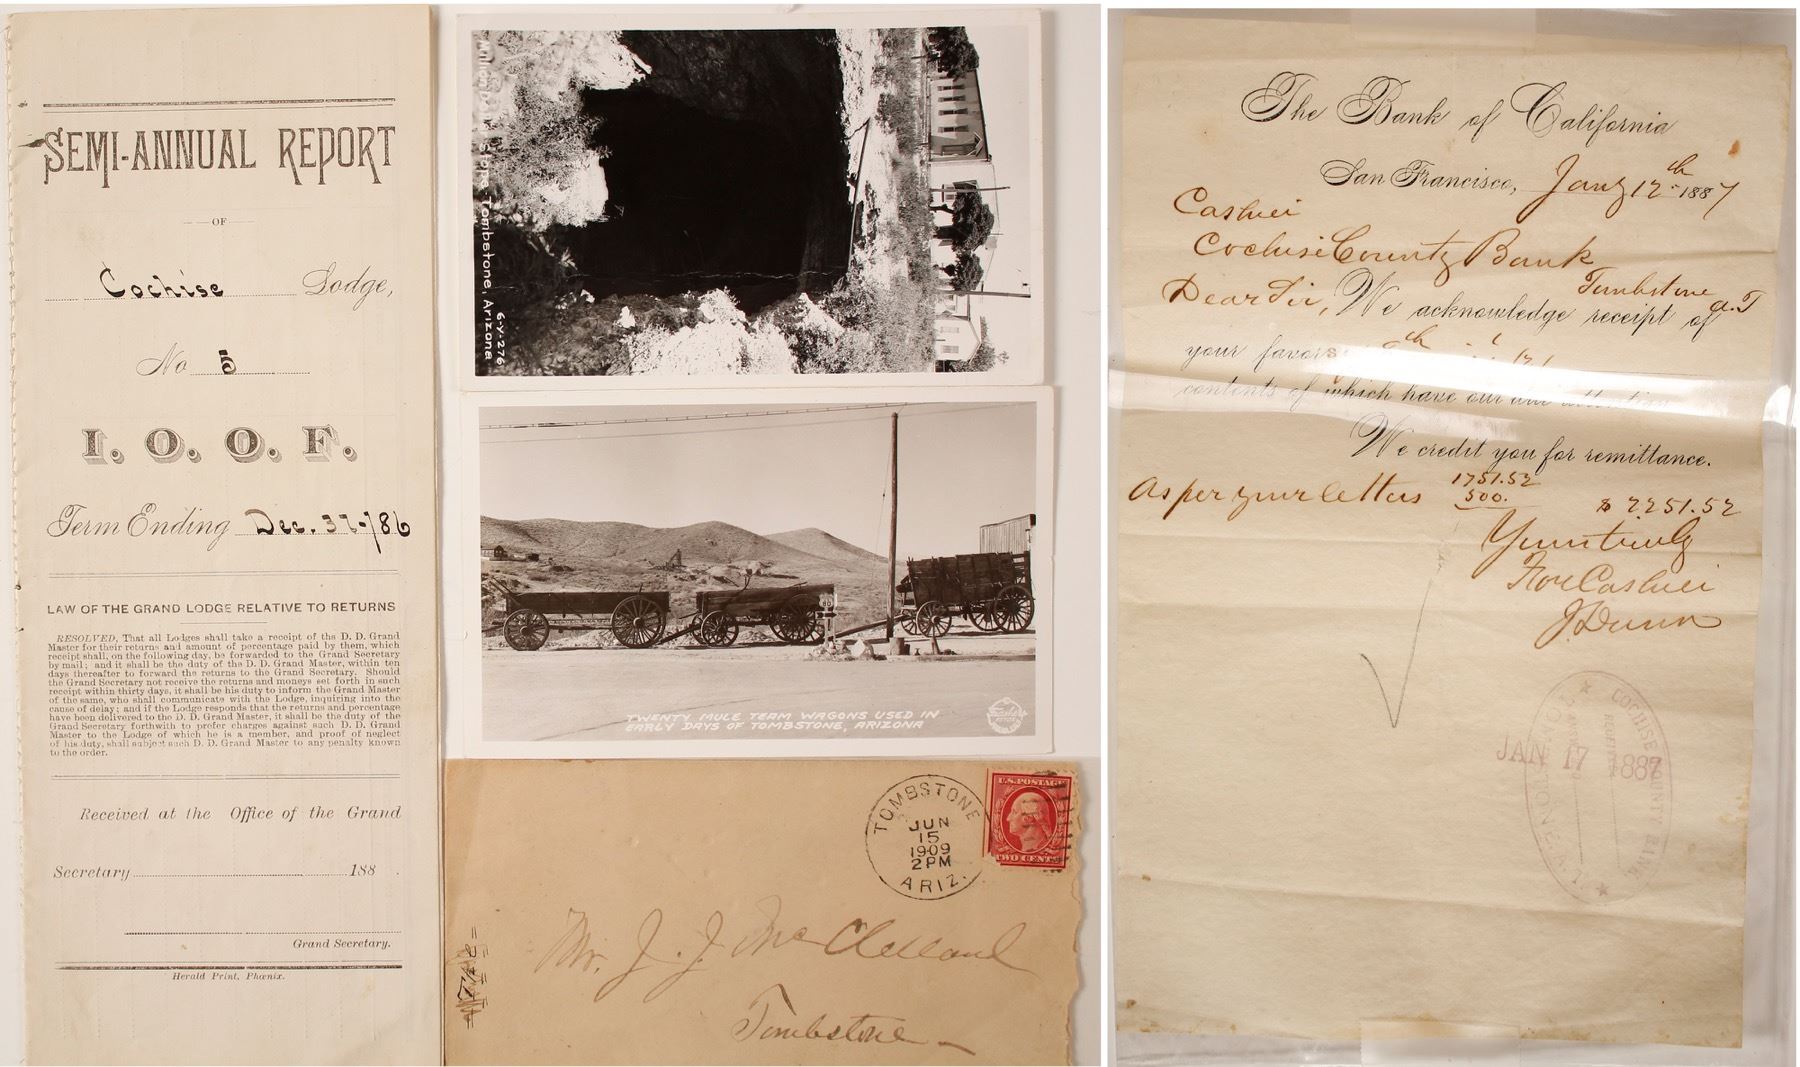 SEMI-ANNUAL REPORT
OF
Cochise Lodge,
No 5
I. O. O. F.
Term Ending Dec. 31-/86
LAW OF THE GRAND LODGE RELATIVE TO RETURNS
RESOLVED, That all Lodges shall take a receipt of the D. D. Grand
Master for their returns and amount of percentage paid by them, which
receipt shall, on the following day, be forwarded to the Grand Secretary
by mail; and it shall be the duty of the D. D. Grand Master, within ten
days thereafter to forward the returns to the Grand Secretary. Should
the Grand Secretary not receive the returns and moneys set forth in such
receipt within thirty days, it shall be his duty to inform the Grand Master
of the same, who shall communicate with the Lodge, inquiring into the
cause of delay; and if the Lodge responds that the returns and percentage
have been delivered to the D. D. Grand Master, it shall be the duty of the
Grand Secretary forthwith to prefer charges against such D. D. Grand
Master to the Lodge of which he is a member, and proof of neglect
of his duty, shall subject such D. D. Grand Master to any penalty known
to the order.
Received at the Office of the Grand
Secretary 188 .
Grand Secretary.
Herald Print, Phœnix.
Stope Tombstone, Arizona
6-Y-276
TWENTY MULE TEAM WAGONS USED IN
EARLY DAYS OF TOMBSTONE, ARIZONA
TOMBSTONE
JUN
15
1909
2PM
ARIZ.
U.S. POSTAGE
TWO CENTS
Mr. J. J. McClelland
Tombstone
The Bank of California
San Francisco, Jany 12th 1887
Cashier
Cochise County Bank
Tombstone A.T
Dear Sir, We acknowledge receipt of
your favors
contents of which have our attention
We credit you for remittance.
As per your letters 1751.52
500.
$ 2251.52
Yours truly
For Cashier
J Dunn
COCHISE COUNTY BANK
JAN 17 1887